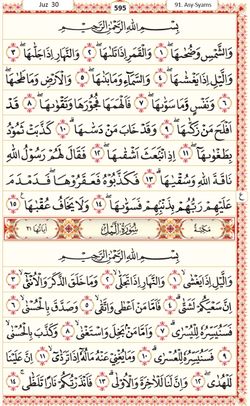 Juz 30 595 91. Asy-Syams
بِسْمِ اللَّهِ الرَّحْمَٰنِ الرَّحِيمِ
وَالشَّمْسِ وَضُحَىٰهَا ۝١ وَالْقَمَرِ إِذَا تَلَىٰهَا ۝٢ وَالنَّهَارِ إِذَا جَلَّىٰهَا ۝٣
وَاللَّيْلِ إِذَا يَغْشَىٰهَا ۝٤ وَالسَّمَاءِ وَمَا بَنَىٰهَا ۝٥ وَالْأَرْضِ وَمَا طَحَىٰهَا
۝٦ وَنَفْسٍ وَمَا سَوَّىٰهَا ۝٧ فَأَلْهَمَهَا فُجُورَهَا وَتَقْوَىٰهَا ۝٨ قَدْ
أَفْلَحَ مَنْ زَكَّىٰهَا ۝٩ وَقَدْ خَابَ مَنْ دَسَّىٰهَا ۝١٠ كَذَّبَتْ ثَمُودُ
بِطَغْوَىٰهَا ۝١١ إِذِ انْبَعَثَ أَشْقَىٰهَا ۝١٢ فَقَالَ لَهُمْ رَسُولُ اللَّهِ
نَاقَةَ اللَّهِ وَسُقْيَٰهَا ۝١٣ فَكَذَّبُوهُ فَعَقَرُوهَا فَدَمْدَمَ
عَلَيْهِمْ رَبُّهُمْ بِذَنْبِهِمْ فَسَوَّىٰهَا ۝١٤ وَلَا يَخَافُ عُقْبَٰهَا ۝١٥
مَكِّيَّة سُورَةُ اللَّيْلِ آيَاتُهَا ٢١
بِسْمِ اللَّهِ الرَّحْمَٰنِ الرَّحِيمِ
وَاللَّيْلِ إِذَا يَغْشَىٰ ۝١ وَالنَّهَارِ إِذَا تَجَلَّىٰ ۝٢ وَمَا خَلَقَ الذَّكَرَ وَالْأُنْثَىٰ ۝٣
إِنَّ سَعْيَكُمْ لَشَتَّىٰ ۝٤ فَأَمَّا مَنْ أَعْطَىٰ وَاتَّقَىٰ ۝٥ وَصَدَّقَ بِالْحُسْنَىٰ ۝٦
فَسَنُيَسِّرُهُ لِلْيُسْرَىٰ ۝٧ وَأَمَّا مَنْ بَخِلَ وَاسْتَغْنَىٰ ۝٨ وَكَذَّبَ بِالْحُسْنَىٰ
۝٩ فَسَنُيَسِّرُهُ لِلْعُسْرَىٰ ۝١٠ وَمَا يُغْنِي عَنْهُ مَالُهُ إِذَا تَرَدَّىٰ ۝١١ إِنَّ عَلَيْنَا
لَلْهُدَىٰ ۝١٢ وَإِنَّ لَنَا لَلْآخِرَةَ وَالْأُولَىٰ ۝١٣ فَأَنْذَرْتُكُمْ نَارًا تَلَظَّىٰ ۝١٤